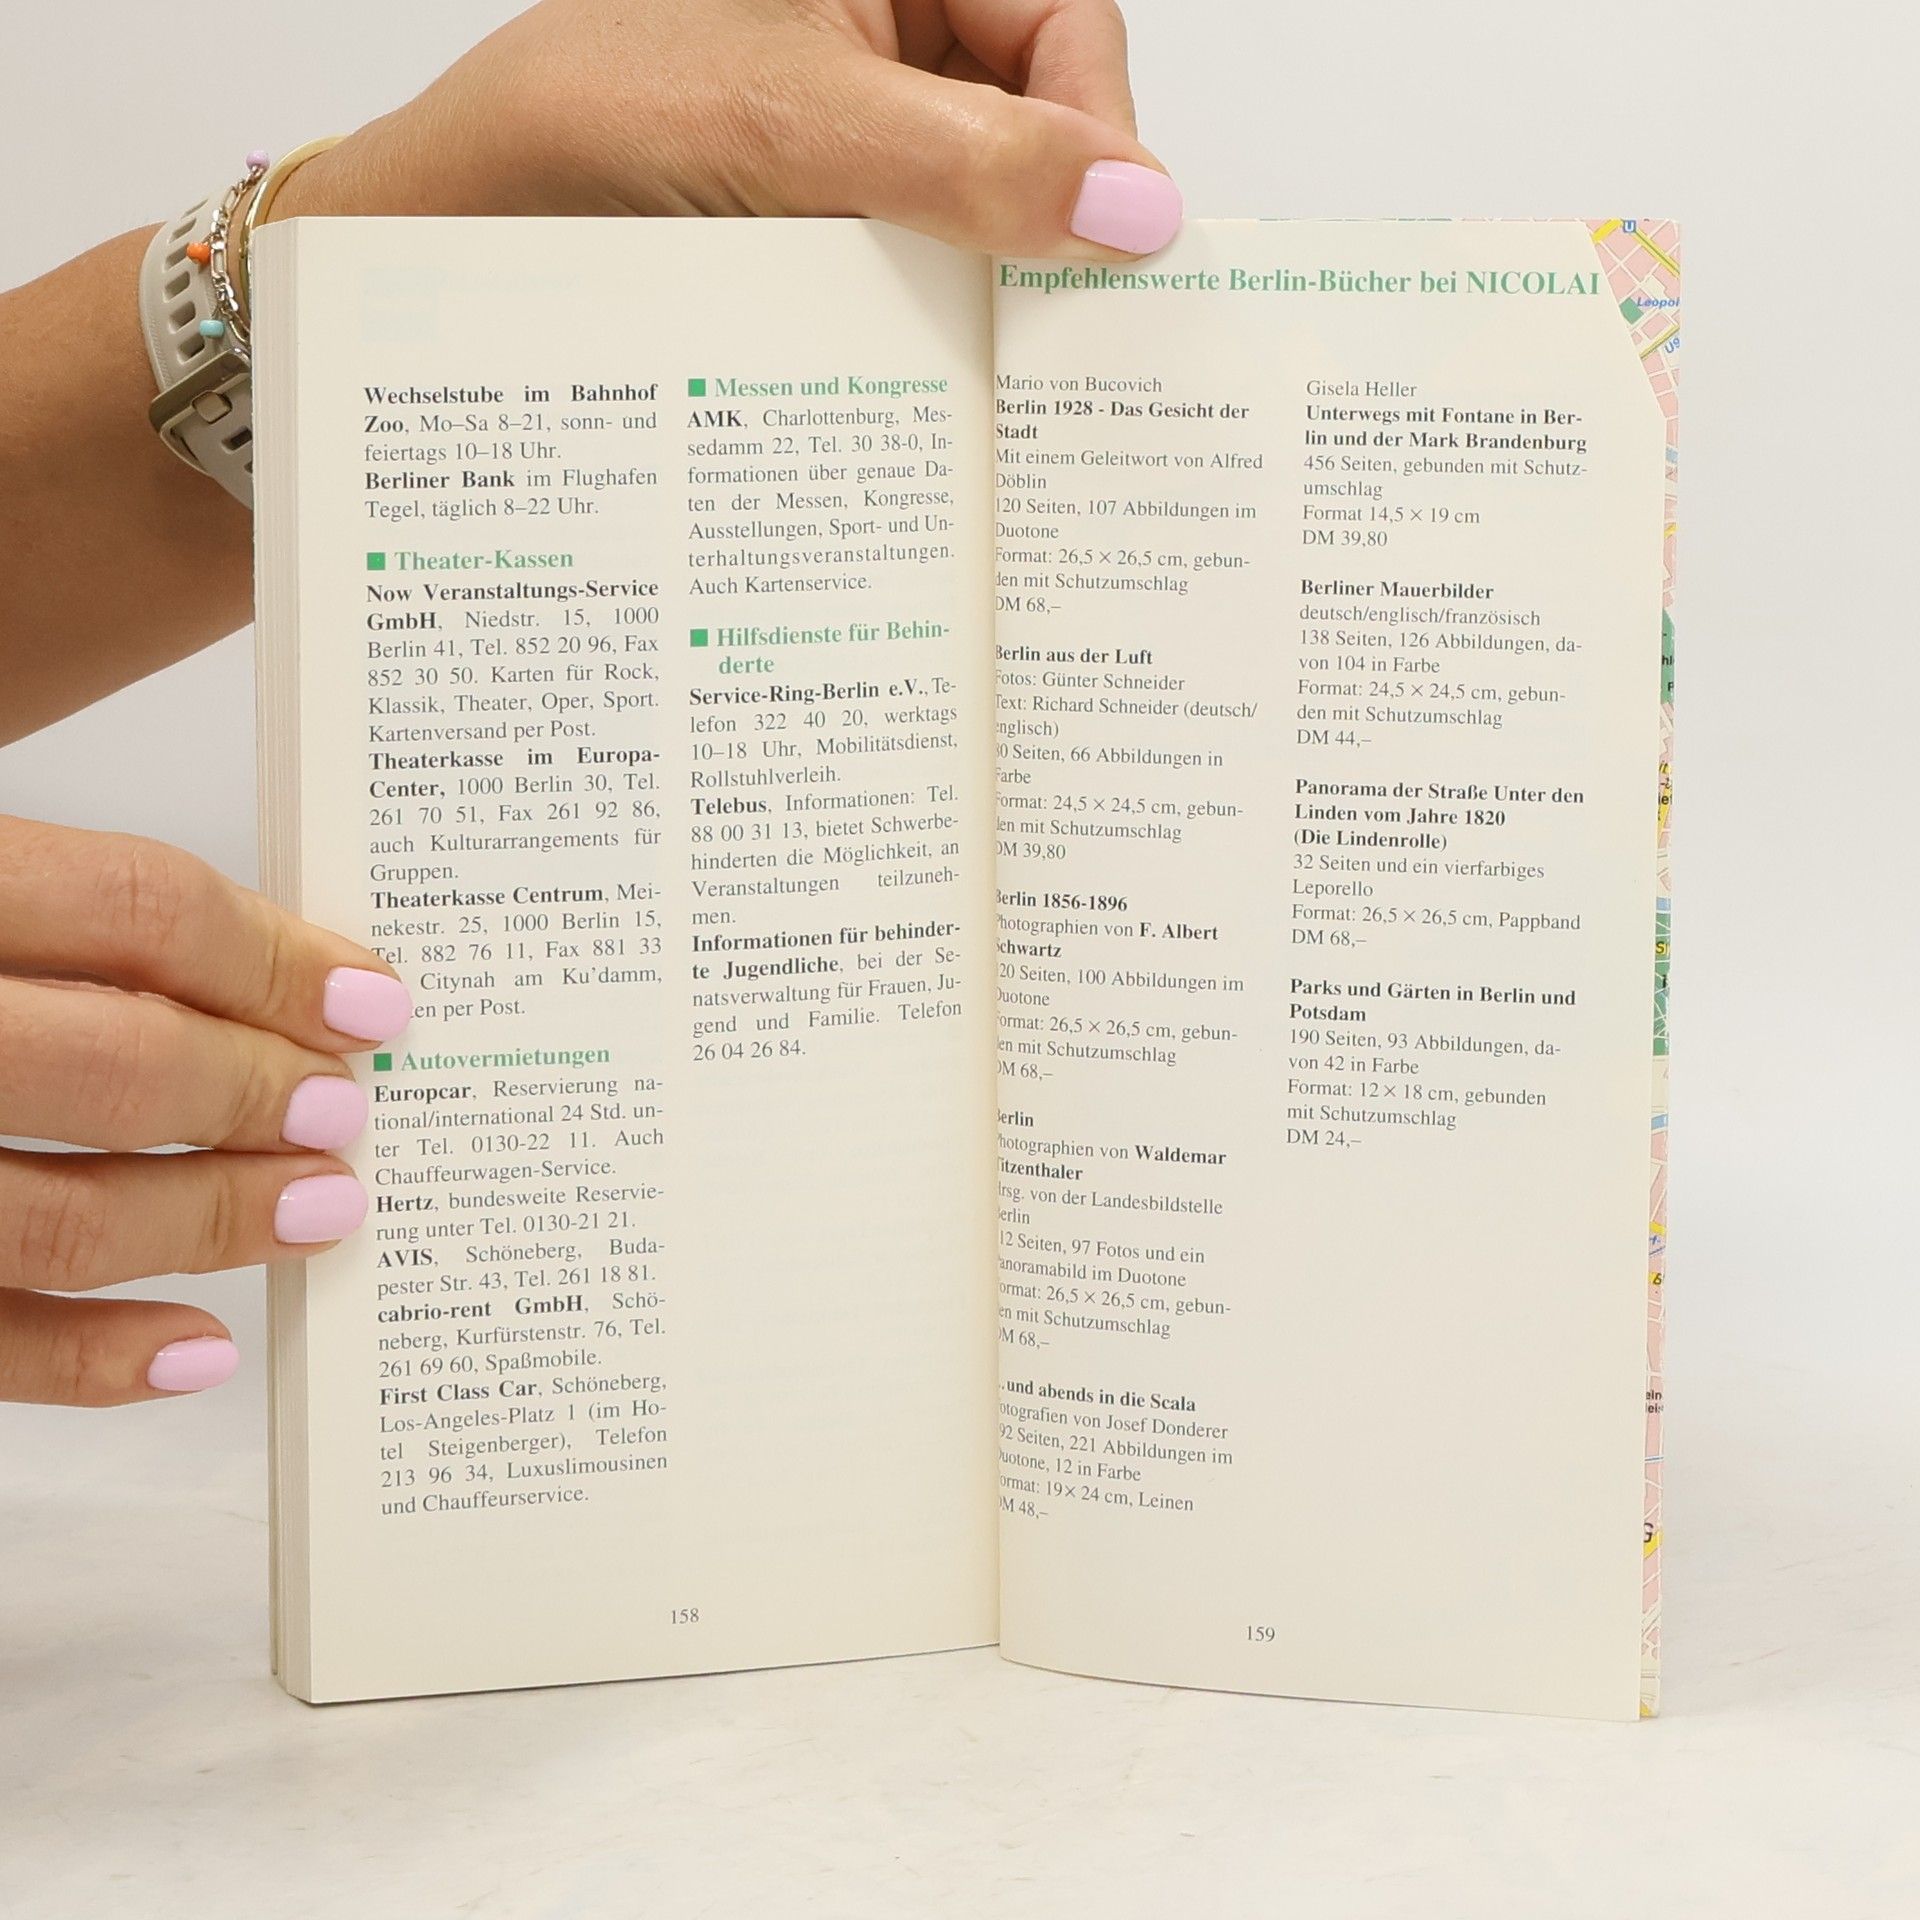 Wechselstube im Bahnhof
Zoo, Mo–Sa 8–21, sonn- und
feiertags 10–18 Uhr.
Berliner Bank im Flughafen
Tegel, täglich 8–22 Uhr.
■ Theater-Kassen
Now Veranstaltungs-Service
GmbH, Niedstr. 15, 1000
Berlin 41, Tel. 852 20 96, Fax
852 30 50. Karten für Rock,
Klassik, Theater, Oper, Sport.
Kartenversand per Post.
Theaterkasse im Europa-
Center, 1000 Berlin 30, Tel.
261 70 51, Fax 261 92 86,
auch Kulturarrangements für
Gruppen.
Theaterkasse Centrum, Mei-
nekestr. 25, 1000 Berlin 15,
Tel. 882 76 11, Fax 881 33
Citynah am Ku'damm,
per Post.
■ Autovermietungen
Europcar, Reservierung na-
tional/international 24 Std. un-
ter Tel. 0130-22 11. Auch
Chauffeurwagen-Service.
Hertz, bundesweite Reservie-
rung unter Tel. 0130-21 21.
AVIS, Schöneberg, Buda-
pester Str. 43, Tel. 261 18 81.
cabrio-rent GmbH, Schö-
neberg, Kurfürstenstr. 76, Tel.
261 69 60, Spaßmobile.
First Class Car, Schöneberg,
Los-Angeles-Platz 1 (im Ho-
tel Steigenberger), Telefon
213 96 34, Luxuslimousinen
und Chauffeurservice.
■ Messen und Kongresse
AMK, Charlottenburg, Mes-
sedamm 22, Tel. 30 38-0, In-
formationen über genaue Da-
ten der Messen, Kongresse,
Ausstellungen, Sport- und Un-
terhaltungsveranstaltungen.
Auch Kartenservice.
■ Hilfsdienste für Behin-
derte
Service-Ring-Berlin e.V., Te-
lefon 322 40 20, werktags
10–18 Uhr, Mobilitätsdienst,
Rollstuhlverleih.
Telebus, Informationen: Tel.
88 00 31 13, bietet Schwerbe-
hinderten die Möglichkeit, an
Veranstaltungen teilzuneh-
men.
Informationen für behinder-
te Jugendliche, bei der Se-
natsverwaltung für Frauen, Ju-
gend und Familie. Telefon
26 04 26 84.
158
Empfehlenswerte Berlin-Bücher bei NICOLAI
Mario von Bucovich
Berlin 1928 - Das Gesicht der
Stadt
Mit einem Geleitwort von Alfred
Döblin
120 Seiten, 107 Abbildungen im
Duotone
Format: 26,5 × 26,5 cm, gebun-
den mit Schutzumschlag
DM 68,–
Berlin aus der Luft
Fotos: Günter Schneider
Text: Richard Schneider (deutsch/
englisch)
Seiten, 66 Abbildungen in
Farbe
Format: 24,5 × 24,5 cm, gebun-
den mit Schutzumschlag
DM 39,80
Berlin 1856-1896
Photographien von F. Albert
Schwartz
Seiten, 100 Abbildungen im
Duotone
Format: 26,5 × 26,5 cm, gebun-
den mit Schutzumschlag
DM 68,–
Berlin
Photographien von Waldemar
Titzenthaler
Hrsg. von der Landesbildstelle
Berlin
Seiten, 97 Fotos und ein
Panoramabild im Duotone
Format: 26,5 × 26,5 cm, gebun-
den mit Schutzumschlag
DM 68,–
...und abends in die Scala
Fotografien von Josef Donderer
Seiten, 221 Abbildungen im
Duotone, 12 in Farbe
Format: 19 × 24 cm, Leinen
DM 48,–
Gisela Heller
Unterwegs mit Fontane in Ber-
lin und der Mark Brandenburg
456 Seiten, gebunden mit Schutz-
umschlag
Format 14,5 × 19 cm
DM 39,80
Berliner Mauerbilder
deutsch/englisch/französisch
138 Seiten, 126 Abbildungen, da-
von 104 in Farbe
Format: 24,5 × 24,5 cm, gebun-
den mit Schutzumschlag
DM 44,–
Panorama der Straße Unter den
Linden vom Jahre 1820
(Die Lindenrolle)
32 Seiten und ein vierfarbiges
Leporello
Format: 26,5 × 26,5 cm, Pappband
DM 68,–
Parks und Gärten in Berlin und
Potsdam
190 Seiten, 93 Abbildungen, da-
von 42 in Farbe
Format: 12 × 18 cm, gebunden
mit Schutzumschlag
DM 24,–
159
U
Leopol
U9